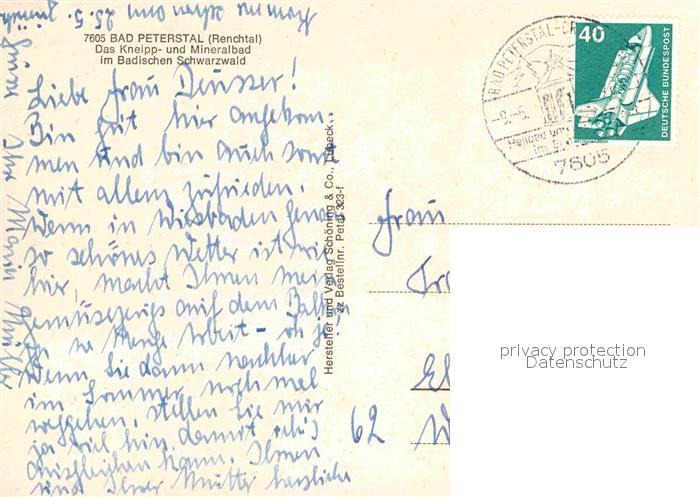 7605 BAD PETERSTAL (Renchtal)
Das Kneipp- und Mineralbad
im Badischen Schwarzwald
Liebe Frau Deusser!
Bin gut hier angekom-
men und bin auch sonst
mit allem zufrieden.
Wenn in Wiesbaden genau
so schönes Wetter ist wie
hier, macht Ihnen mein
Gemüse auf dem Balkon
ja ne Menge Arbeit - oh je!
Wenn Sie dann nachher
im Sommer noch mal
weggehen, stellen Sie mir
ja viel hin, damit ich's
ausgleichen kann. Ihnen
und Ihrer Mutter herzliche
Grüße Ihre Maria
Komme schon am 25. 5. zurück
Hersteller und Verlag Schöning & Co., Lübeck
Bestellnr. Petal 323-f
BAD PETERSTAL-GR
7605
40
DEUTSCHE BUNDESPOST
Frau
62 W
privacy protection
Datenschutz